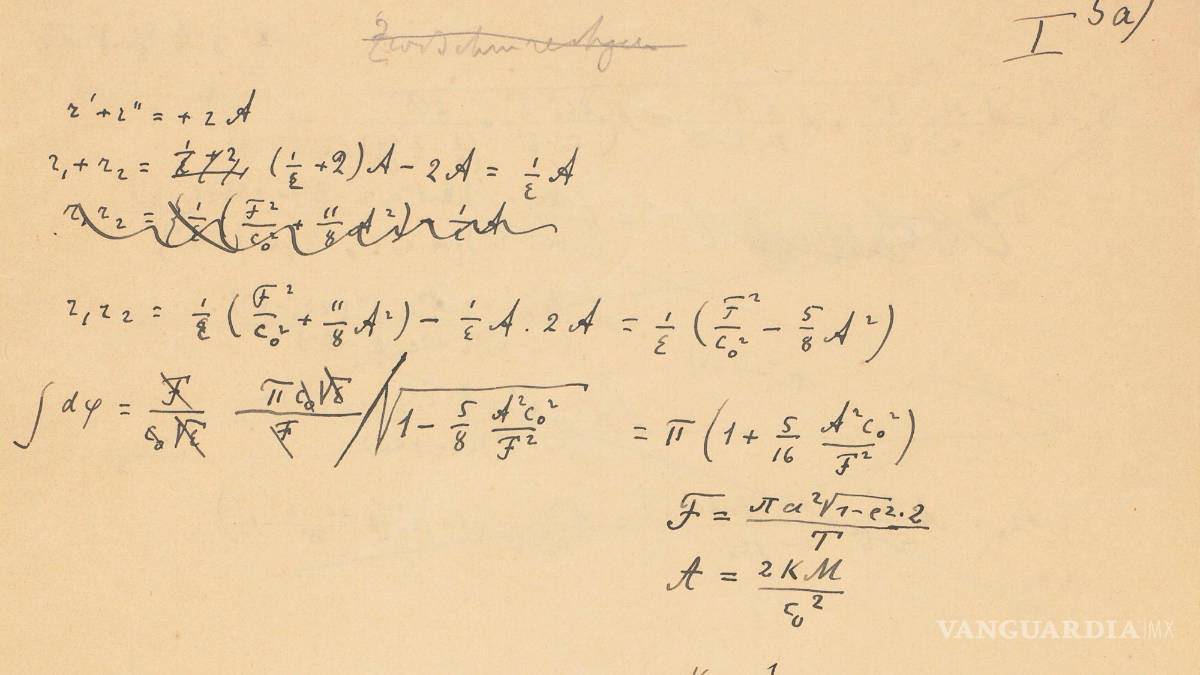 I 3a)
r' + r'' = + 2 A
r₁ + r₂ = (1/ε + 2) A − 2 A = 1/ε A
r₁ r₂ = 1/ε (F²/c₀² + 11/8 A²) − 1/ε A
r₁ r₂ = 1/ε (F²/c₀² + 11/8 A²) − 1/ε A · 2 A = 1/ε (F²/c₀² − 5/8 A²)
∫ dφ = F/(c₀ √ε) π c₀ √ε/F / √(1 − 5/8 A² c₀²/F²) = π (1 + 5/16 A² c₀²/F²)
F = π a² √(1 − e²) · 2 / T
A = 2 K M / c₀²
VANGUARDIA|MX